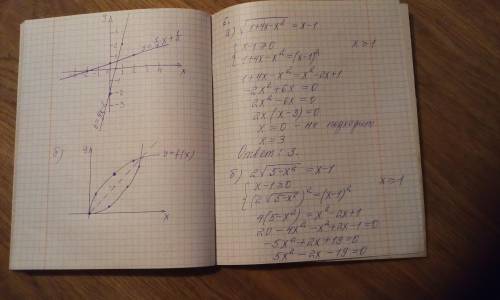 y
y = 1/2 x + 1/2
x
-2
-3
б)
y
y = f(x)
x
6.
а) √(1+4x-x²) = x-1
{ x-1≥0    x≥1
{ 1+4x-x² = (x-1)²
1+4x-x² = x²-2x+1
-2x²+6x = 0
2x²-6x = 0
2x(x-3) = 0
x = 0 - не подходит
x = 3
Ответ: 3.
б) 2√(5-x²) = x-1
{ x-1≥0    x≥1
{ (2√(5-x²))² = (x-1)²
4(5-x²) = x²-2x+1
20-4x²-x²+2x-1=0
-5x²+2x+19=0
5x²-2x-19=0